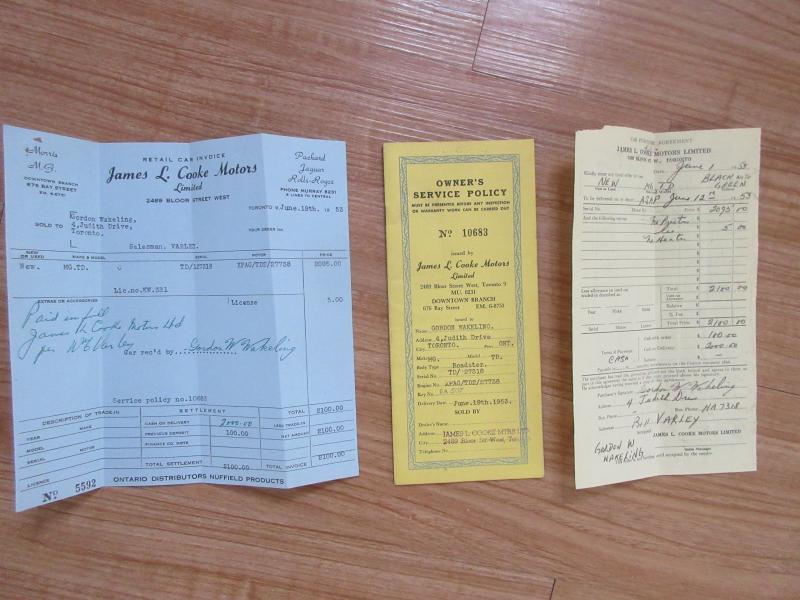 Morris
M.G.
DOWNTOWN BRANCH
676 BAY STREET
EM. 6-8751
RETAIL CAR INVOICE
James L. Cooke Motors
Limited
2489 BLOOR STREET WEST
Packard
Jaguar
Rolls-Royce
PHONE MURRAY 8231
TORONTO June.19th. 19 53
SOLD TO Gordon Wakeling,
4, Judith Drive,
Toronto.
YOUR ORDER NO.
Salesman, VARLEY.
NEW OR USED MAKE & MODEL SERIAL MOTOR PRICE
New. MG.TD. TD/27318 XPAG/TD2/27738 2095.00
Lic.no.KN.521
EXTRAS OR ACCESSORIES
License 5.00
Paid in full
James L Cooke Motors Ltd
per Wm Varley
Car rec'd by Gordon W Wakeling
Service policy no.10683
DESCRIPTION OF TRADE-IN SETTLEMENT TOTAL 2100.00
YEAR MAKE CASH ON DELIVERY 2000.00 LESS TRADE-IN
MODEL PREVIOUS DEPOSIT 100.00 NET AMOUNT 2100.00
MOTOR FINANCE CO. DEBT
SERIAL
TOTAL SETTLEMENT 2100.00 TOTAL INVOICE 2100.00
LICENCE
Nº 5592
ONTARIO DISTRIBUTORS NUFFIELD PRODUCTS
OWNER'S
SERVICE POLICY
MUST BE PRESENTED BEFORE ANY INSPECTION
OR WARRANTY WORK CAN BE CARRIED OUT
Nº 10683
issued by
James L. Cooke Motors
Limited
2489 Bloor Street West, Toronto 9
MU. 8231
DOWNTOWN BRANCH
676 Bay Street EM. 6-8751
issued to
Name GORDON WAKELING.
Address 4, Judith Drive
TORONTO. Prov. ONT.
Make MG. Model TD.
Body Type Roadster.
Serial No. TD/ 27318
Engine No. XPAG/TD2/27738
Key No.
Delivery Date June.19th.1953.
SOLD BY
Dealer's Name
Address JAMES L COOKE MTRS LTD.
City 2489 Bloor St. West, Tor.
Telephone No.
AGREEMENT
JAMES L. COOKE MOTORS LIMITED
TORONTO
Date June 1 1953
NEW MG TD BLACK
GREEN
To be delivered on or about ASAP June 12th 53
Serial No. 2095 00
And the following extras
5 00
No Heater
Total 2100 00
Year Make
Total Price 2100 00
Serial Motor License
Cash with order 100 00
Terms of Payment Cash on Delivery 2000 00
CASH
Purchaser's Signature Gordon W Wakeling
Address 4 Judith Drive
Bus. Phone Res. Phone MA 7318
Salesman Bill VARLEY
JAMES L. COOKE MOTORS LIMITED
GORDON W
WAKELING